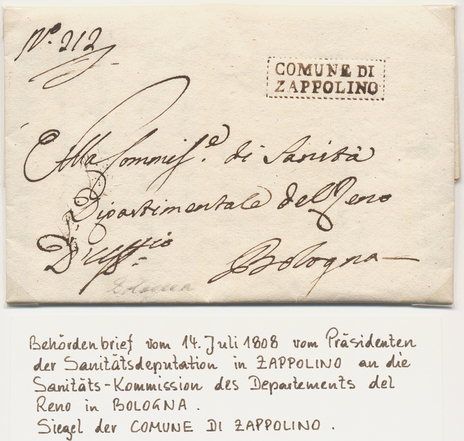 Nº. 212
COMUNE DI
ZAPPOLINO
Alla Commiss.e di Sanità
Dipartimentale del Reno
D'Uffizio
Bologna
Behördenbrief vom 14. Juli 1808 vom Präsidenten
der Sanitätsdeputation in ZAPPOLINO an die
Sanitäts-Kommission des Departements del
Reno in BOLOGNA.
Siegel der COMUNE DI ZAPPOLINO.